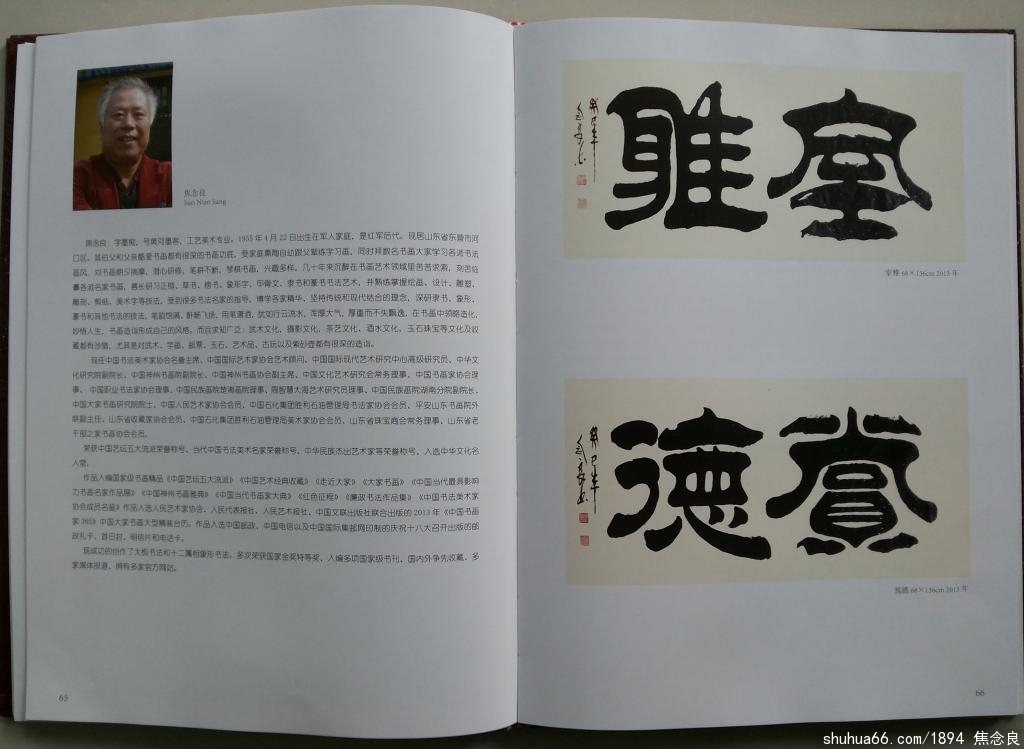 焦念良
Jiao Nian liang
焦念良：字墨痴，号黄河墨客，工艺美术专业。1955 年 4 月 22 日出生在军人家庭，是红军后代。现居山东省东营市河
口区。其伯父和父亲酷爱书画都有很深的书画功底，受家庭熏陶自幼跟父辈练学习画，同时拜数名书画大家学习各派书法
画风，对书画朝夕揣摩，潜心研修，笔耕不断，琴棋书画，兴趣多样。几十年来沉醉在书画艺术领域里苦苦求索，刻苦临
摹各派名家书画，善长研习正楷、草书、楷书、象形字、甲骨文、隶书和篆书书法艺术，并熟练掌握绘画、设计、雕塑、
雕刻、剪纸、美术字等技法，受到很多书法名家的指导，博学各家精华，坚持传统和现代结合的理念，深研隶书、象形、
篆书和其他书法的技法，笔韵饱满、酣畅飞扬，用笔潇洒，犹如行云流水，浑厚大气，厚重而不失飘逸，在书画中领略造化，
妙悟人生，书画造诣形成自己的风格。而且求知广泛：武术文化、摄影文化、茶艺文化、酒水文化、玉石珠宝等文化及收
藏都有涉猎，尤其是对武术、字画、邮票、玉石、艺术品、古玩以及紫砂壶都有很深的造诣。
现任中国书法美术家协会名誉主席、中国国际艺术家协会艺术顾问、中国国际现代艺术研究中心高级研究员、中华文
化研究院副院长、中国神州书画院副院长、中国神州书画协会副主席、中国文化艺术研究会常务理事、中国书画家协会理
事、中国职业书法家协会理事、中国民族画院楚湘画院理事、周智慧大海艺术研究员理事、中国民族画院湖南分院副院长、
中国大家书画研究院院士、中国人民艺术家协会会员、中国石化集团胜利石油管理局书法家协会会员、平安山东书画院外
联副主任、山东省收藏家协会会员、中国石化集团胜利石油管理局美术家协会会员、山东省珠宝商会常务理事、山东省老
干部之家书画协会会员。
荣获中国艺坛五大流派荣誉称号、当代中国书法美术名家荣誉称号、中华民族杰出艺术家等荣誉称号，入选中华文化名
人堂。
作品入编国家级书画精品《中国艺坛五大流派》《中国艺术经典收藏》《走近大家》《大家书画》《中国当代最具影响
力书画名家作品展》《中国神州书画雅典》《中国当代书画家大典》《红色征程》《廉政书法作品集》《中国书法美术家
协会成员名鉴》作品入选人民艺术家协会、人民代表报社、人民艺术报社、中国文联出版社联合出版的 2013 年《中国书画
家 365》中国大家书画大型精装台历。作品入选中国邮政、中国电信以及中国国际集邮网印制的庆祝十八大召开出版的邮
政礼卡、首日封、明信片和电话卡。
现成功的创作了太极书法和十二属相象形书法，多次荣获国家金奖特等奖，入编多项国家级书刊，国内外争先收藏，多
家媒体报道，拥有多家官方网站。
65
室雅
癸巳年
室雅 68×136cm 2013 年
癸巳年
68×136cm 2013 年
66
shuhua66.com/1894 焦念良